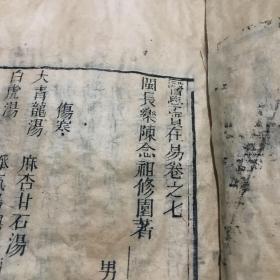 醫學實在易卷之七
閩長樂陳念祖修園著
男
傷寒
大青龍湯 麻杏甘石湯
白虎湯